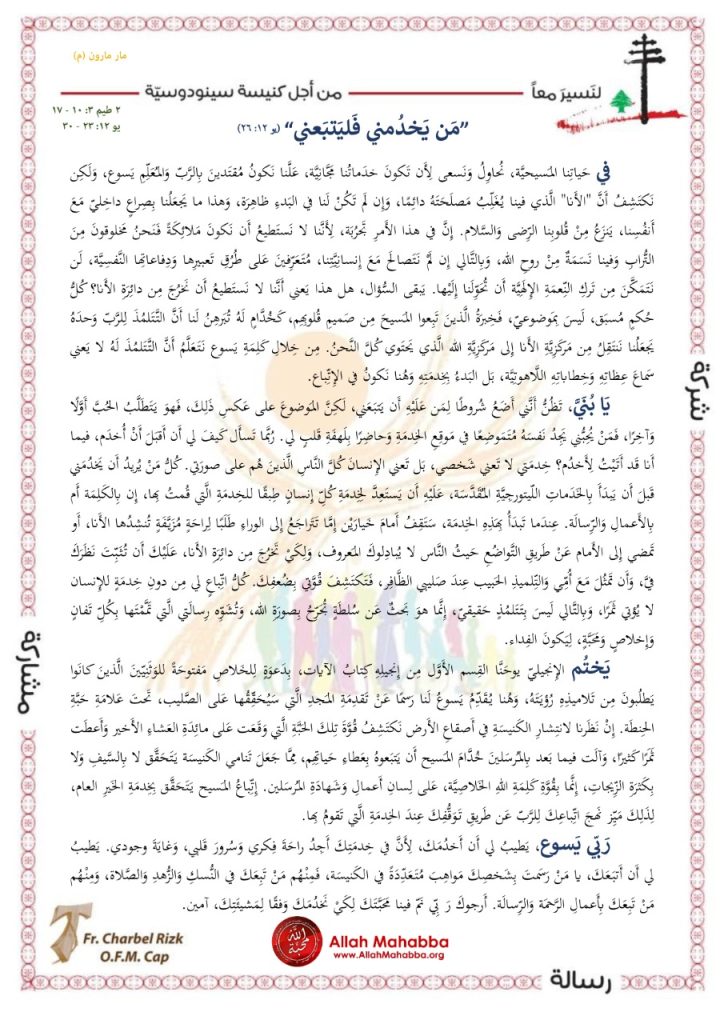 مار مارون (م)
لنَسيرَ معاً
من أجل كنيسة سينودوسيّة
٢ طيم ٣: ١٠ - ١٧
يو ١٢: ٢٣ - ٣٠
”مَن يَخدُمني فَليَتبَعني“ (يو ١٢: ٢٦)
في حَياتِنا المَسيحيَّة، نُحاوِلُ وَنَسعى لِأَن تَكونَ خَدَماتُنا مَجَّانِيَّة، عَلَّنا نَكونُ مُقتَدينَ بِالرَّبِّ وَالمُعَلِّمِ يَسوع، وَلَكِن
نَكتَشِفُ أَنَّ "الأَنا" الَّذي فينا يُغَلِّبُ مَصلَحَتَهُ دائِمًا، وَإِن لَم تَكُنْ لَنا في البَدءِ ظاهِرَة، وَهذا ما يَجعَلُنا بِصِراعٍ داخِليّ مَعَ
أَنفُسِنا، يَنزَعُ مِنْ قُلوبِنا الرِّضى وَالسَّلام. إِنَّ في هذا الأَمرِ تَجرُبَة، لِأَنَّنا لا نَستَطيعُ أَن نَكونَ مَلائِكَةً فَنَحنُ مَخلوقونَ مِنَ
التُّرابِ وَفينا نَسَمَةٌ مِنْ روحِ الله، وَبِالتَّالي إِن لَمْ نَتَصالَح مَعَ إِنسانِيَّتِنا، مُتَعَرِّفينَ عَلى طُرُقِ تَعبيرِها وَدِفاعاتِها النَّفسِيَّة، لَن
نَتَمَكَّنَ مِن تَركِ النِّعمَةِ الإِلَهِيَّةِ أَن تُحَوِّلَنا إِلَيْها. يَبقى السُّؤال، هل هذا يَعني أَنَّنا لا نَستَطيعُ أَن نَخرُجَ مِن دائِرَةِ الأَنا؟ كُلُّ
حُكمٍ مُسبَق، لَيسَ بِمَوضوعيّ، فَخِبرَةُ الَّذينَ تَبِعوا المَسيحَ مِن صَميمِ قُلوبِهِم، كَخُدَّامٍ لَهُ تُبَرهِنُ لَنا أَنَّ التَّتَلمُذَ لِلرَّبِّ وَحدَهُ
يَجعَلُنا نَنتَقِلُ مِن مَركَزِيَّةِ الأَنا إِلى مَركَزِيَّةِ الله الَّذي يَحتَوي كُلَّ النَّحنُ. مِن خِلالِ كَلِمَةِ يَسوع نَتَعَلَّمُ أَنَّ التَّتَلمُذَ لَهُ لا يَعني
سَماعَ عِظاتِهِ وَخِطاباتِهِ اللَّاهوتِيَّة، بَل البَدءُ بِخِدمَتِهِ وَهُنا نَكونُ في الإتِّباع.
يَا بُنَيَّ، تَظُنُّ أَنَّني أَضَعُ شُروطًا لِمَن عَلَيْهِ أَن يَتبَعَني، لَكِنَّ المَوضوعَ عَلى عَكسِ ذَلِكَ، فَهوَ يَتَطَلَّبُ الحُبَّ أَوَّلًا
وَآخِرًا، فَمَنْ يُحِبُّني يَجِدُ نَفسَهُ مُتَمَوضِعًا في مَوقِعِ الخِدمَةِ وَحاضِرًا بِلَهفَةِ قَلبٍ لي. رُبَّما تَسأَل كَيفَ لي أَن أَقبَلَ أَنْ أُخدَم، فيما
أَنا قَد أَتَيْتُ لِأَخدُم؟ خِدمَتي لا تَعني شَخصي، بَل تَعني الإِنسانَ كُلَّ النَّاسِ الَّذينَ هُم عَلى صورَتي. كُلُّ مَنْ يُريدُ أَن يَخدُمَني
قَبلَ أَن يَبدَأَ بِالخَدَماتِ اللِّيتورجِيَّةِ المُقَدَّسَة، عَلَيْهِ أَن يَستَعِدَّ لِخِدمَةِ كُلِّ إِنسانٍ طِبقًا لِلخِدمَةِ الَّتي قُمتُ بِها، إِن بِالكَلِمَةِ أَم
بِالأَعمالِ وَالرِّسالَة. عِندَما تَبدَأُ بِهَذِهِ الخِدمَة، سَتَقِفُ أَمامَ خَيارَيْن إِمَّا تَتَراجَعُ إِلى الوراءِ طَلَبًا لِراحَةٍ مُزَيَّفَةٍ تُنشِدُها الأَنا، أَو
تَمضي إِلى الأَمام عَنْ طَريقِ التَّواضُعِ حَيثُ النَّاس لا يُبادِلوكَ المَعروف، وَلِكَيْ تَخرُجَ مِن دائِرَةِ الأَنا، عَلَيْكَ أَن تُثَبِّتَ نَظَرَكَ
فِيَّ، وَأَن تَمثُلَ مَعَ أُمِّي وَالتِّلميذِ الحَبيب عِندَ صَليبي الظَّافِر، فَتَكتَشِفَ قُوَّتي بِضُعفِكَ. كُلُّ اتِّباعٍ لي مِن دونِ خِدمَةٍ لِلإِنسان
لا يُؤتي ثَمَرًا، وَبِالتَّالي لَيسَ بِتَتَلمُذٍ حَقيقيّ، إِنَّما هوَ بَحثٌ عَن سُلطَةٍ تُجَرِّحُ بِصورَةِ الله، وَتُشَوِّه رِسالَتي الَّتي تَمَّمتُها بِكُلِّ تَفانٍ
وَإِخلاصٍ وَمَحَبَّةٍ، لِيَكونَ الفِداء.
يَختُم الإِنجيليّ يوحَنَّا القِسم الأَوَّل مِن إِنجيلِهِ كِتابُ الآيات، بِدَعوَةٍ لِلخَلاصِ مَفتوحَةً لِلوَثَنيِّينَ الَّذينَ كانوا
يَطلُبونَ مِن تَلاميذِهِ رُؤيَتَهُ، وَهُنا يُقَدِّمُ يَسوعُ لَنا رَسمًا عَنْ تَقدِمَةِ المَجدِ الَّتي سَيُحَقِّقُها عَلى الصَّليب، تَحتَ عَلامَةِ حَبَّةِ
الحِنطَة. إِنْ نَظَرنا لانتِشارِ الكَنيسَةِ في أَصقاعِ الأَرض نَكتَشِفُ قُوَّةَ تِلكَ الحَبَّةِ الَّتي وَقَعَت عَلى مائِدَةِ العَشاءِ الأَخير وَأَعطَت
ثَمَرًا كَثيرًا، وَآلَت فيما بَعد بِالمُرسَلينَ خُدَّامَ المَسيح أَن يَتبَعوهُ بِعَطاءِ حَياتِهِم، مِمَّا جَعَلَ تَنامي الكَنيسَة يَتَحَقَّق لا بِالسَّيفِ وَلا
بِكَثرَةِ الزِّيجاتِ، إِنَّما بِقُوَّةِ كَلِمَةِ اللهِ الخَلاصِيَّة، عَلى لِسانِ أَعمالِ وَشَهادَةِ المُرسَلين. إِتِّباعُ المَسيح يَتَحَقَّق بِخِدمَةِ الخَيرِ العام،
لِذَلِكَ مَيِّز نَهجَ اتِّباعِكَ لِلرَّبِّ عَن طَريقِ تَوَقُّفِكَ عِندَ الخِدمَةِ الَّتي تَقومُ بِها.
رَبّي يَسوع، يَطيبُ لي أَن أَخدُمَكَ، لِأَنَّ في خِدمَتِكَ أَجِدُ راحَةَ فِكري وَسُرورَ قَلبي، وَغايَةَ وجودي. يَطيبُ
لي أَن أَتبَعَكَ، يا مَنْ رَسَمتَ بِشَخصِكَ مَواهِبَ مُتَعَدِّدَةً في الكَنيسَة، فَمِنْهُم مَنْ تَبِعَكَ في النُّسكِ وَالزُّهدِ وَالصَّلاة، وَمِنْهُم
مَنْ تَبِعَكَ بِأَعمالِ الرَّحمَة وَالرِّسالَة. أَرجوكَ رَبِّي نَمِّ فينا مَحَبَّتَكَ لِكَيْ نَخدُمَكَ وَفقًا لِمَشيئَتِكَ، آمين.
شركة
مشاركة
رسالة
Fr. Charbel Rizk
O.F.M. Cap
الله محبّة
Allah Mahabba
www.AllahMahabba.org